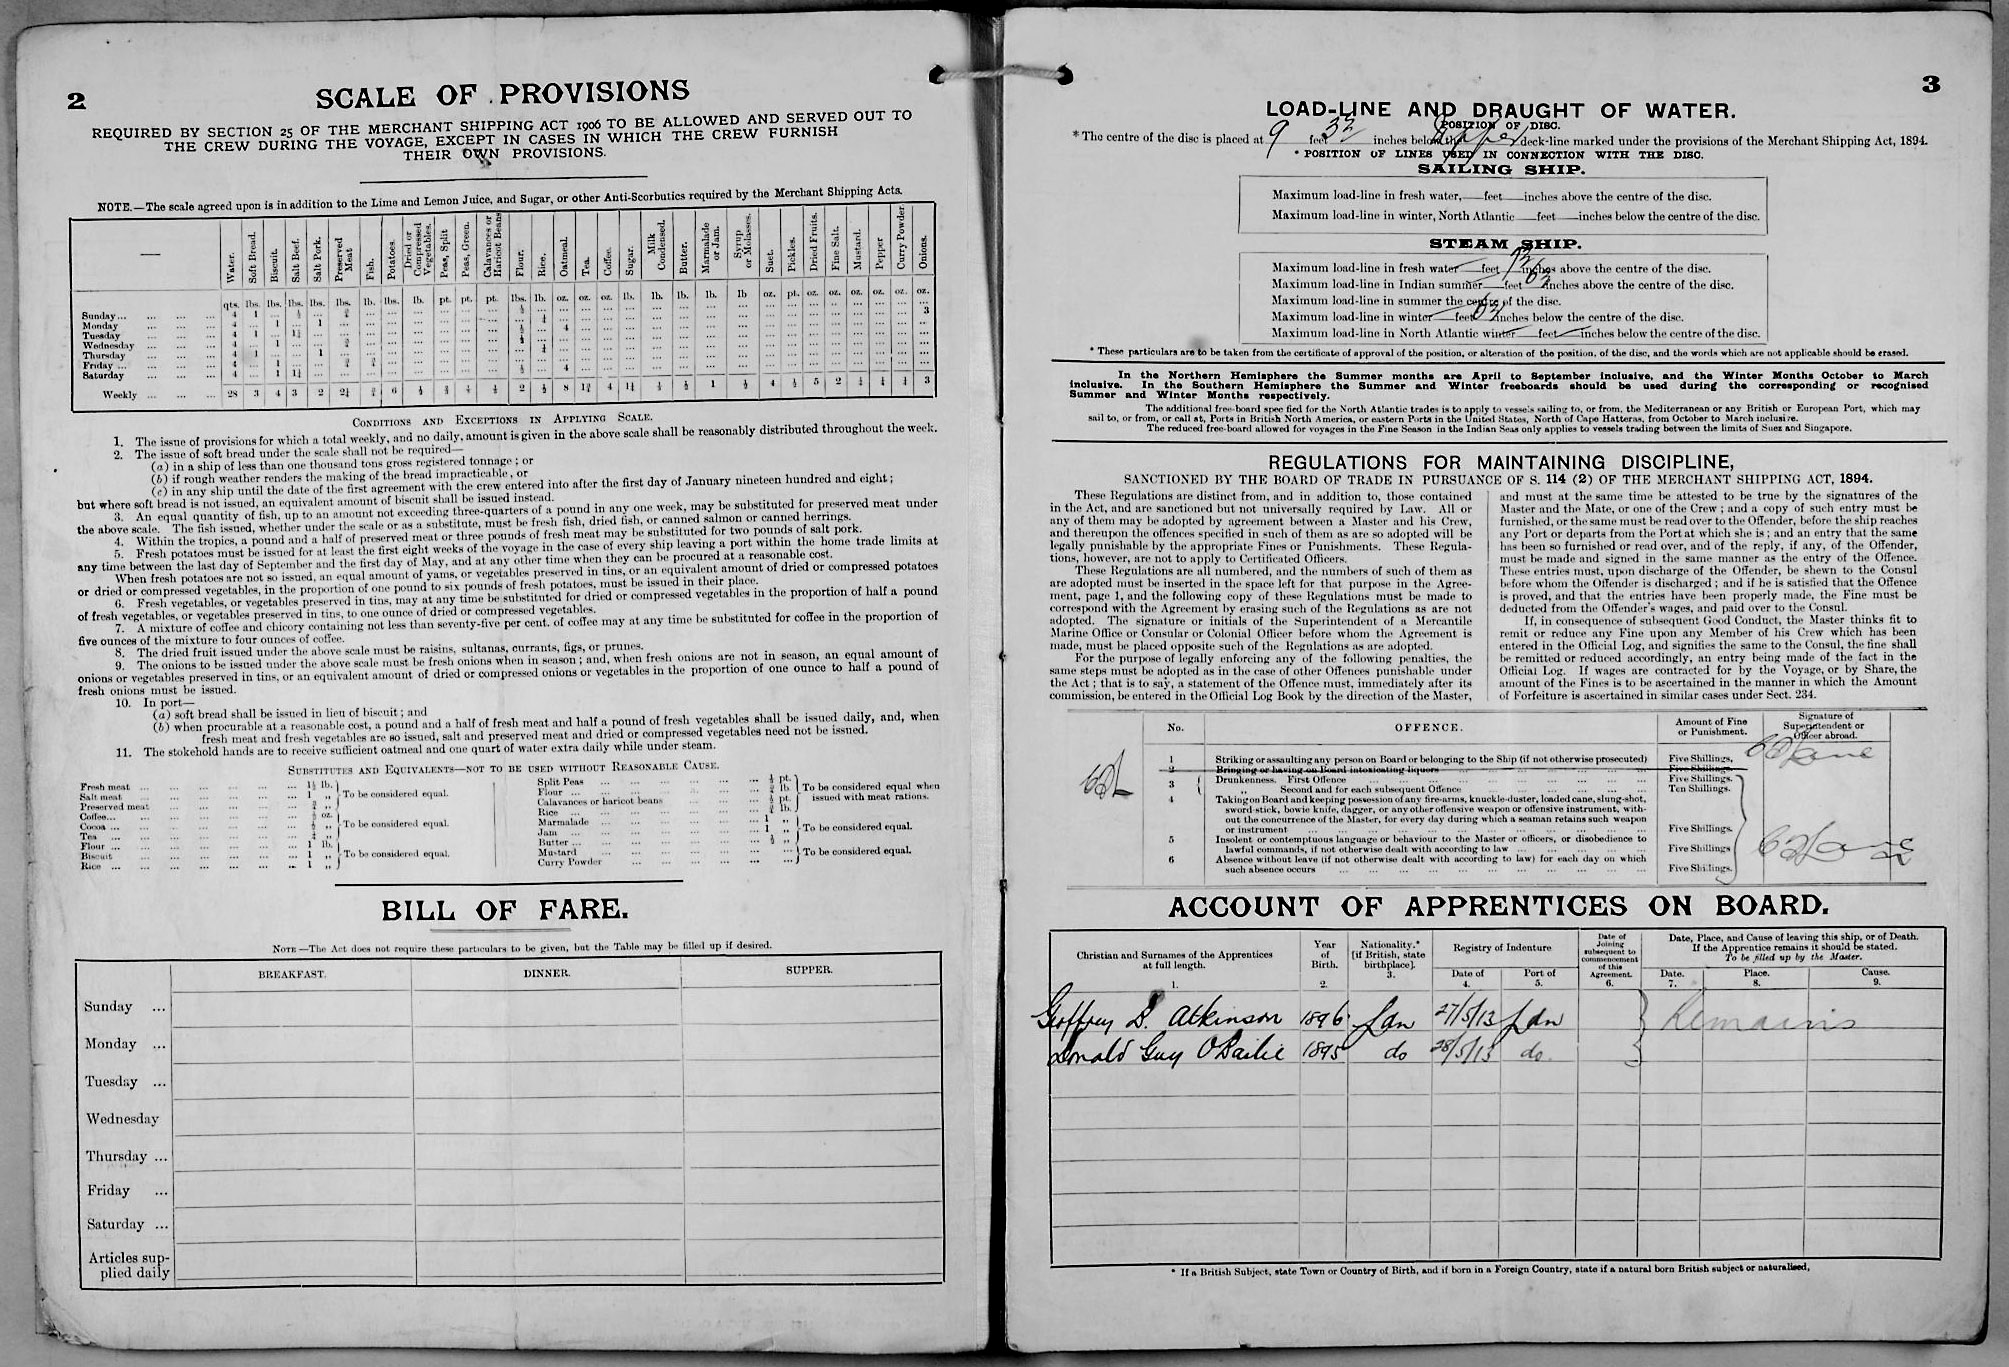 2
SCALE OF PROVISIONS
REQUIRED BY SECTION 25 OF THE MERCHANT SHIPPING ACT 1906 TO BE ALLOWED AND SERVED OUT TO
THE CREW DURING THE VOYAGE, EXCEPT IN CASES IN WHICH THE CREW FURNISH
THEIR OWN PROVISIONS.
NOTE.—The scale agreed upon is in addition to the Lime and Lemon Juice, and Sugar, or other Anti-Scorbutics required by the Merchant Shipping Acts.
— Water. Soft Bread. Biscuit. Salt Beef. Salt Pork. Preserved Meat Fish. Potatoes. Dried or Compressed Vegetables. Peas, Split Peas, Green. Calavances or Haricot Beans Flour. Rice. Oatmeal. Tea. Coffee. Sugar. Milk Condensed. Butter. Marmalade or Jam. Syrup or Molasses. Suet. Pickles. Dried Fruits. Fine Salt. Mustard. Pepper Curry Powder. Onions.
qts. lbs. lbs. lbs. lbs. lbs. lb. lbs. lb. pt. pt. pt. lbs. lb. oz. oz. oz. lb. lb. lb. lb. lb oz. pt. oz. oz. oz. oz. oz. oz.
Sunday... 4 1 ... ½ ... ¾ ... ½ ... 3
Monday 4 ... 1 ... 1 ... 4
Tuesday 4 1 ... 1½ ... ½
Wednesday 4 ... 1 ... ¾ ... ½
Thursday 4 1 ... 1
Friday ... 4 ... 1 ... ¾ ¾ ... ½ ... 4
Saturday 4 ... 1 1½
Weekly ... 28 3 4 3 2 2¼ ¾ 6 ½ 2 ½ 8 1¾ 4 1¼ ½ 1 ½ 4 ½ 5 2 ¼ ¼ ¼ 3
CONDITIONS AND EXCEPTIONS IN APPLYING SCALE.
1. The issue of provisions for which a total weekly, and no daily, amount is given in the above scale shall be reasonably distributed throughout the week.
2. The issue of soft bread under the scale shall not be required—
(a) in a ship of less than one thousand tons gross registered tonnage; or
(b) if rough weather renders the making of the bread impracticable, or
(c) in any ship until the date of the first agreement with the crew entered into after the first day of January nineteen hundred and eight;
but where soft bread is not issued, an equivalent amount of biscuit shall be issued instead.
3. An equal quantity of fish, up to an amount not exceeding three-quarters of a pound in any one week, may be substituted for preserved meat under
the above scale. The fish issued, whether under the scale or as a substitute, must be fresh fish, dried fish, or canned salmon or canned herrings.
4. Within the tropics, a pound and a half of preserved meat or three pounds of fresh meat may be substituted for two pounds of salt pork.
5. Fresh potatoes must be issued for at least the first eight weeks of the voyage in the case of every ship leaving a port within the home trade limits at
any time between the last day of September and the first day of May, and at any other time when they can be procured at a reasonable cost.
When fresh potatoes are not so issued, an equal amount of yams, or vegetables preserved in tins, or an equivalent amount of dried or compressed potatoes
or dried or compressed vegetables, in the proportion of one pound to six pounds of fresh potatoes, must be issued in their place.
6. Fresh vegetables, or vegetables preserved in tins, may at any time be substituted for dried or compressed vegetables in the proportion of half a pound
of fresh vegetables, or vegetables preserved in tins, to one ounce of dried or compressed vegetables.
7. A mixture of coffee and chicory containing not less than seventy-five per cent. of coffee may at any time be substituted for coffee in the proportion of
five ounces of the mixture to four ounces of coffee.
8. The dried fruit issued under the above scale must be raisins, sultanas, currants, figs, or prunes.
9. The onions to be issued under the above scale must be fresh onions when in season; and, when fresh onions are not in season, an equal amount of
onions or vegetables preserved in tins, or an equivalent amount of dried or compressed onions or vegetables in the proportion of one ounce to half a pound of
fresh onions must be issued.
10. In port—
(a) soft bread shall be issued in lieu of biscuit; and
(b) when procurable at a reasonable cost, a pound and a half of fresh meat and half a pound of fresh vegetables shall be issued daily, and, when
fresh meat and fresh vegetables are so issued, salt and preserved meat and dried or compressed vegetables need not be issued.
11. The stokehold hands are to receive sufficient oatmeal and one quart of water extra daily while under steam.
SUBSTITUTES AND EQUIVALENTS—NOT TO BE USED WITHOUT REASONABLE CAUSE.
Fresh meat ... 1½ lb.
Salt meat ... 1 „ To be considered equal.
Preserved meat ... ¾ „
Coffee... ½ oz.
Cocoa ... ½ „ To be considered equal.
Tea ... ¼ „
Flour ... 1 lb.
Biscuit ... 1 „ To be considered equal.
Rice ... 1 „
Split Peas ... ½ pt.
Flour ... ¾ lb. To be considered equal when
Calavances or haricot beans ... ½ pt. issued with meat rations.
Rice ... ¾ lb.
Marmalade ... 1 „
Jam ... 1 „ To be considered equal.
Butter ... ½ „
Mustard ... To be considered equal.
Curry Powder
BILL OF FARE.
NOTE—The Act does not require these particulars to be given, but the Table may be filled up if desired.
BREAKFAST. DINNER. SUPPER.
Sunday ...
Monday ...
Tuesday ...
Wednesday
Thursday ...
Friday ...
Saturday ...
Articles sup-
plied daily
3
LOAD-LINE AND DRAUGHT OF WATER.
POSITION OF DISC.
*The centre of the disc is placed at 9 feet 3½ inches below the Upper deck-line marked under the provisions of the Merchant Shipping Act, 1894.
* POSITION OF LINES USED IN CONNECTION WITH THE DISC.
SAILING SHIP.
Maximum load-line in fresh water,—feet—inches above the centre of the disc.
Maximum load-line in winter, North Atlantic—feet—inches below the centre of the disc.
STEAM SHIP.
Maximum load-line in fresh water—feet inches above the centre of the disc.
Maximum load-line in Indian summer—feet 6½ inches above the centre of the disc.
Maximum load-line in summer the centre of the disc.
Maximum load-line in winter—feet 6½ inches below the centre of the disc.
Maximum load-line in North Atlantic winter—feet—inches below the centre of the disc.
* These particulars are to be taken from the certificate of approval of the position, or alteration of the position, of the disc, and the words which are not applicable should be erased.
In the Northern Hemisphere the Summer months are April to September inclusive, and the Winter Months October to March
inclusive. In the Southern Hemisphere the Summer and Winter freeboards should be used during the corresponding or recognised
Summer and Winter Months respectively.
The additional free-board spec fied for the North Atlantic trades is to apply to vessels sailing to, or from, the Mediterranean or any British or European Port, which may
sail to, or from, or call at, Ports in British North America, or eastern Ports in the United States, North of Cape Hatteras, from October to March inclusive.
The reduced free-board allowed for voyages in the Fine Season in the Indian Seas only applies to vessels trading between the limits of Suez and Singapore.
REGULATIONS FOR MAINTAINING DISCIPLINE,
SANCTIONED BY THE BOARD OF TRADE IN PURSUANCE OF S. 114 (2) OF THE MERCHANT SHIPPING ACT, 1894.
These Regulations are distinct from, and in addition to, those contained
in the Act, and are sanctioned but not universally required by Law. All or
any of them may be adopted by agreement between a Master and his Crew,
and thereupon the offences specified in such of them as are so adopted will be
legally punishable by the appropriate Fines or Punishments. These Regula-
tions, however, are not to apply to Certificated Officers.
These Regulations are all numbered, and the numbers of such of them as
are adopted must be inserted in the space left for that purpose in the Agree-
ment, page 1, and the following copy of these Regulations must be made to
correspond with the Agreement by erasing such of the Regulations as are not
adopted. The signature or initials of the Superintendent of a Mercantile
Marine Office or Consular or Colonial Officer before whom the Agreement is
made, must be placed opposite such of the Regulations as are adopted.
For the purpose of legally enforcing any of the following penalties, the
same steps must be adopted as in the case of other Offences punishable under
the Act; that is to say, a statement of the Offence must, immediately after its
commission, be entered in the Official Log Book by the direction of the Master,
and must at the same time be attested to be true by the signatures of the
Master and the Mate, or one of the Crew; and a copy of such entry must be
furnished, or the same must be read over to the Offender, before the ship reaches
any Port or departs from the Port at which she is; and an entry that the same
has been so furnished or read over, and of the reply, if any, of the Offender,
must be made and signed in the same manner as the entry of the Offence.
These entries must, upon discharge of the Offender, be shewn to the Consul
before whom the Offender is discharged; and if he is satisfied that the Offence
is proved, and that the entries have been properly made, the Fine must be
deducted from the Offender's wages, and paid over to the Consul.
If, in consequence of subsequent Good Conduct, the Master thinks fit to
remit or reduce any Fine upon any Member of his Crew which has been
entered in the Official Log, and signifies the same to the Consul, the fine shall
be remitted or reduced accordingly, an entry being made of the fact in the
Official Log. If wages are contracted for by the Voyage, or by Share, the
amount of the Fines is to be ascertained in the manner in which the Amount
of Forfeiture is ascertained in similar cases under Sect. 234.
No. OFFENCE. Amount of Fine or Punishment. Signature of Superintendent or Officer abroad.
1 Striking or assaulting any person on Board or belonging to the Ship (if not otherwise prosecuted) Five Shillings.
2 Bringing or having on Board intoxicating liquors ... Five Shillings.
3 Drunkenness. First Offence ... Five Shillings.
„ Second and for each subsequent Offence ... Ten Shillings.
4 Taking on Board and keeping possession of any fire-arms, knuckle-duster, loaded cane, slung-shot,
sword-stick, bowie knife, dagger, or any other offensive weapon or offensive instrument, with-
out the concurrence of the Master, for every day during which a seaman retains such weapon
or instrument ... Five Shillings.
5 Insolent or contemptuous language or behaviour to the Master or officers, or disobedience to
lawful commands, if not otherwise dealt with according to law ... Five Shillings
6 Absence without leave (if not otherwise dealt with according to law) for each day on which
such absence occurs ... Five Shillings.
ACCOUNT OF APPRENTICES ON BOARD.
Christian and Surnames of the Apprentices at full length. 1. Year of Birth. 2. Nationality.* [if British, state birthplace]. 3. Registry of Indenture Date of 4. Port of 5. Date of Joining subsequent to commencement of this Agreement. 6. Date, Place, and Cause of leaving this ship, or of Death. If the Apprentice remains it should be stated. To be filled up by the Master. Date. 7. Place. 8. Cause. 9.
Geoffrey S. Atkinson 1896 Ldn 27/5/13 Ldn Remains
Donald Guy O'Bailie 1895 do 28/5/13 do.
* If a British Subject, state Town or Country of Birth, and if born in a Foreign Country, state if a natural born British subject or naturalised,